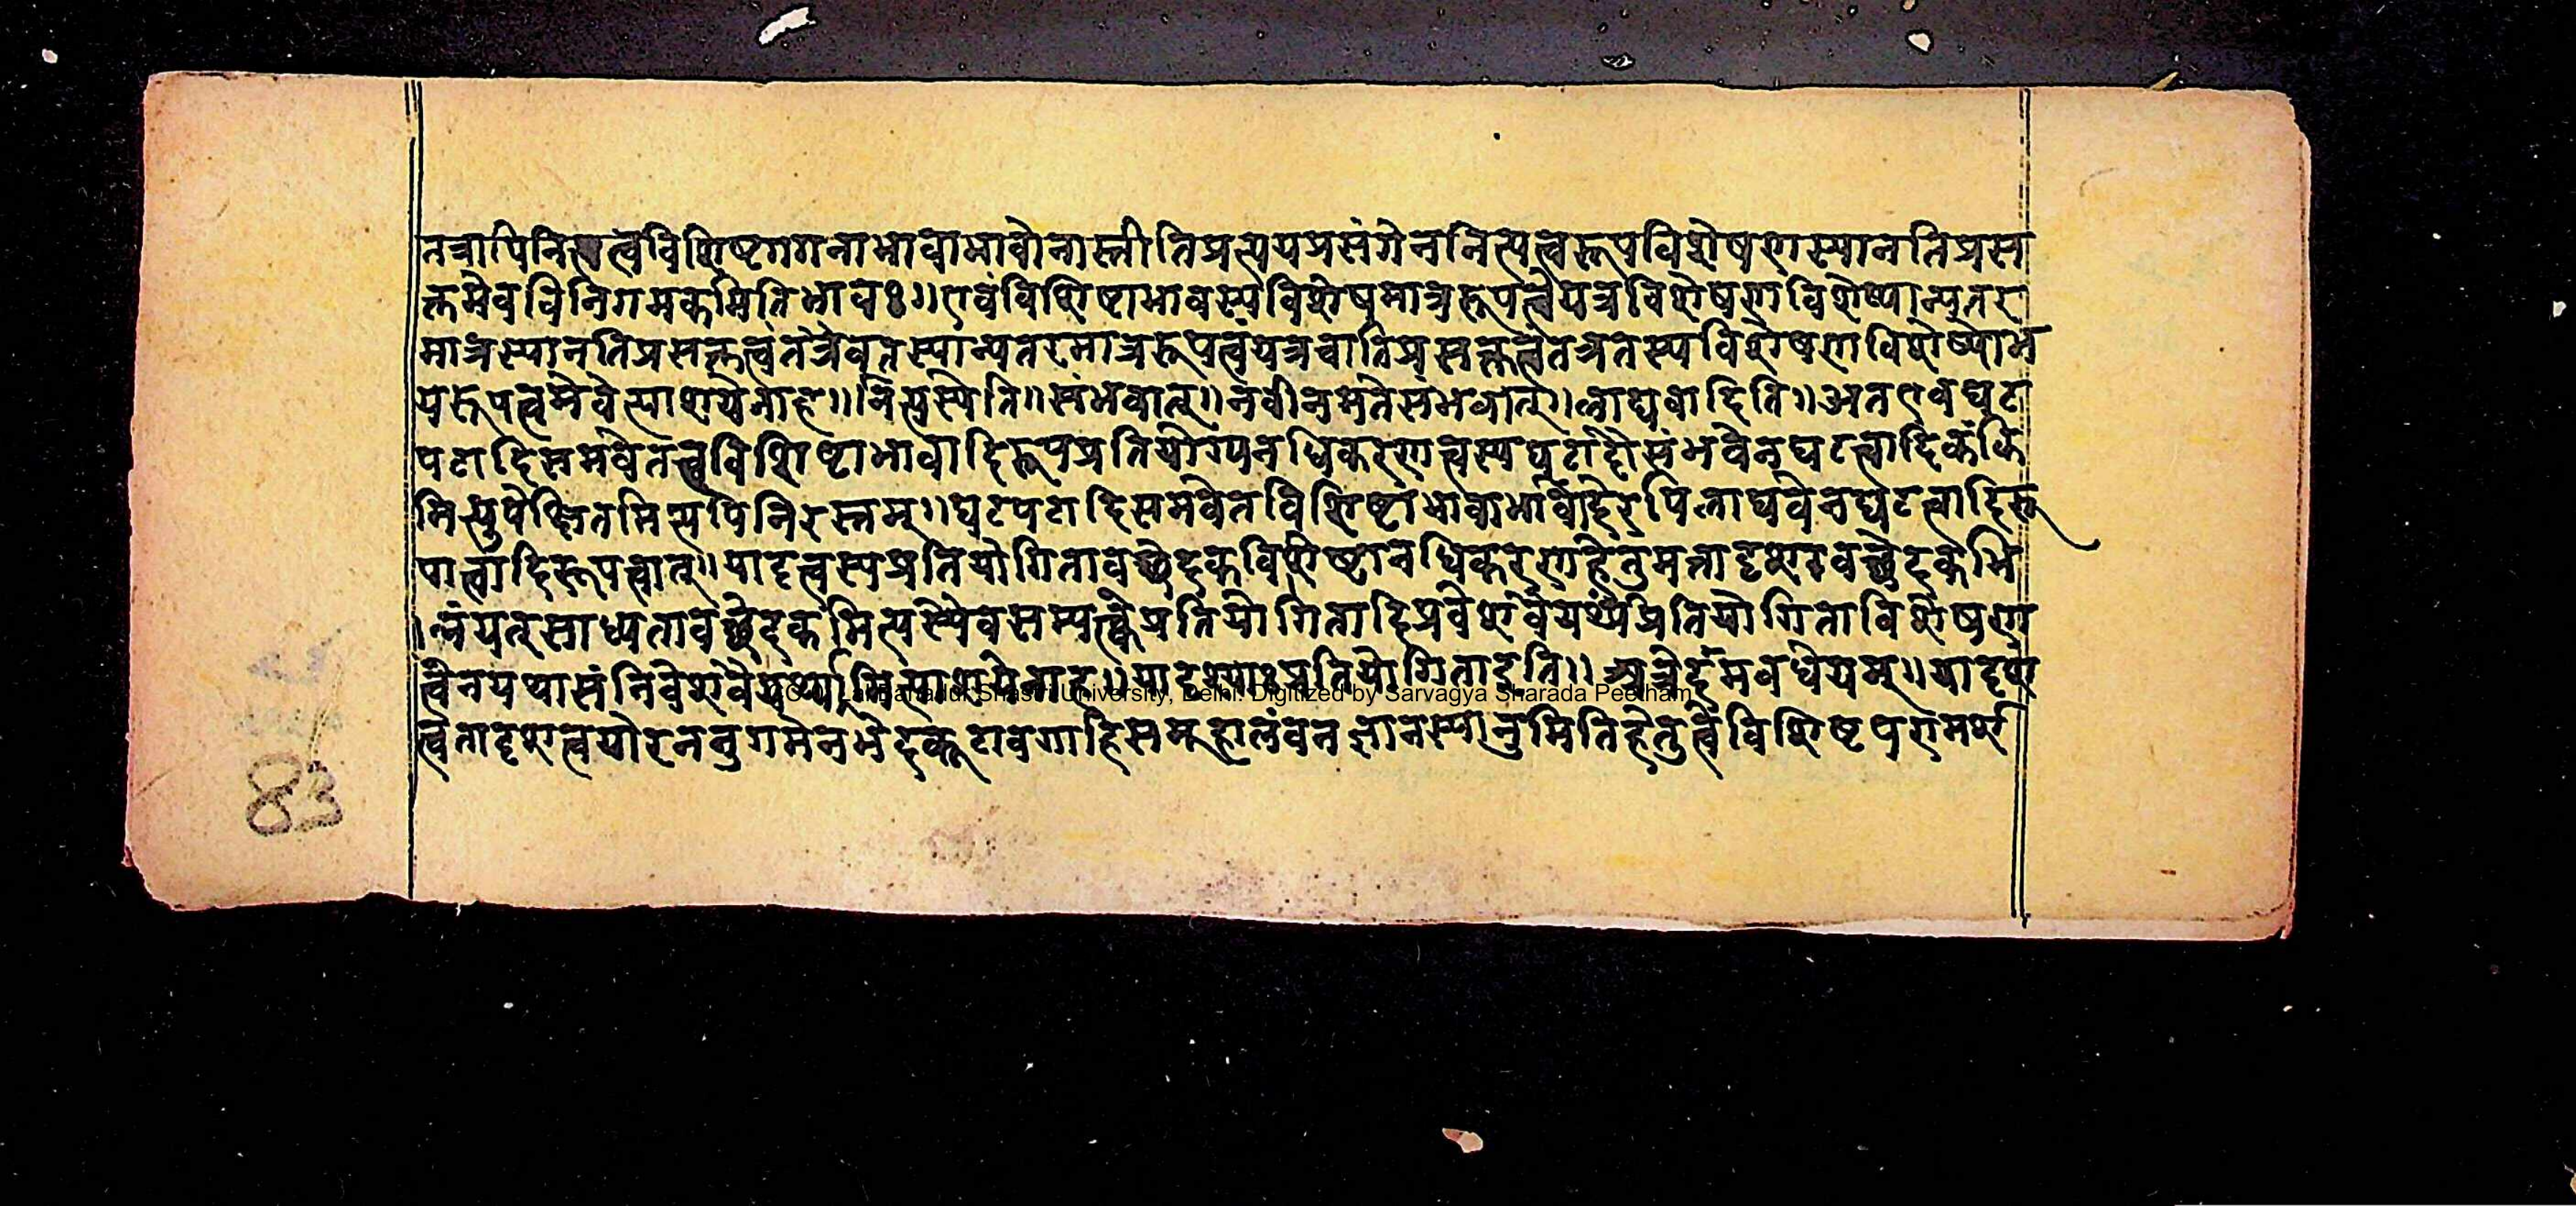 तत्रापिनित्यत्वविशिष्टगगनाभावाभावोनास्तीतिप्रत्ययप्रसंगेननित्यत्वरूपविशेषणस्यानतिप्रस
क्तमेवविनिगमकमितिभावः॥एवंविशिष्टाभावस्यविशेषमात्ररूपत्वेयत्रविशेषणविशेष्यान्यतर
मात्रस्यानतिप्रसक्तत्वंतत्रैवतस्यान्यतरमात्ररूपत्वंयत्रचातिप्रसक्तत्वंतत्रतस्यविशेषणविशेष्योभ
यरूपत्वमेवेत्याशयेनाह॥नित्यस्येति॥संभवात्॥नवीनमतेसंभवात्॥लाघवादिति॥अतएवघट
पटादिसमवेतत्वविशिष्टाभावादिरूपप्रतियोग्यनधिकरणत्वस्यघटादौसंभवेनघटत्वादिकंकि
मित्युपेक्षितमित्यपिनिरस्तम्॥घटपटादिसमवेतविशिष्टाभावाभावादेरपिलाघवेनघटत्वादिरू
पात्वादिरूपत्वात्॥यादृत्वस्यप्रतियोगितावच्छेदकविशिष्टानधिकरणहेतुमत्तादृशावच्छेदकभि
न्नंयत्साध्यतावच्छेदकमित्यस्यैवसम्यक्त्वेप्रतियोगितादिप्रवेशवैयर्थ्यंप्रतियोगिताविशेषण
त्वेनयथासंनिवेशवैयर्थ्यमित्याशयेनाह॥यादृश्याःप्रतियोगिताइति॥अत्रेदमवधेयम्॥यादृश
त्वतादृशत्वयोरननुगमेनभेदकूटावगाहिसमूहालंवनज्ञानस्यानुमितिहेतुत्वेविशिष्टपरामर्श
83
© Lal Bahadur Shastri University, Delhi. Digitized by Sarvagya Sharada Peetham